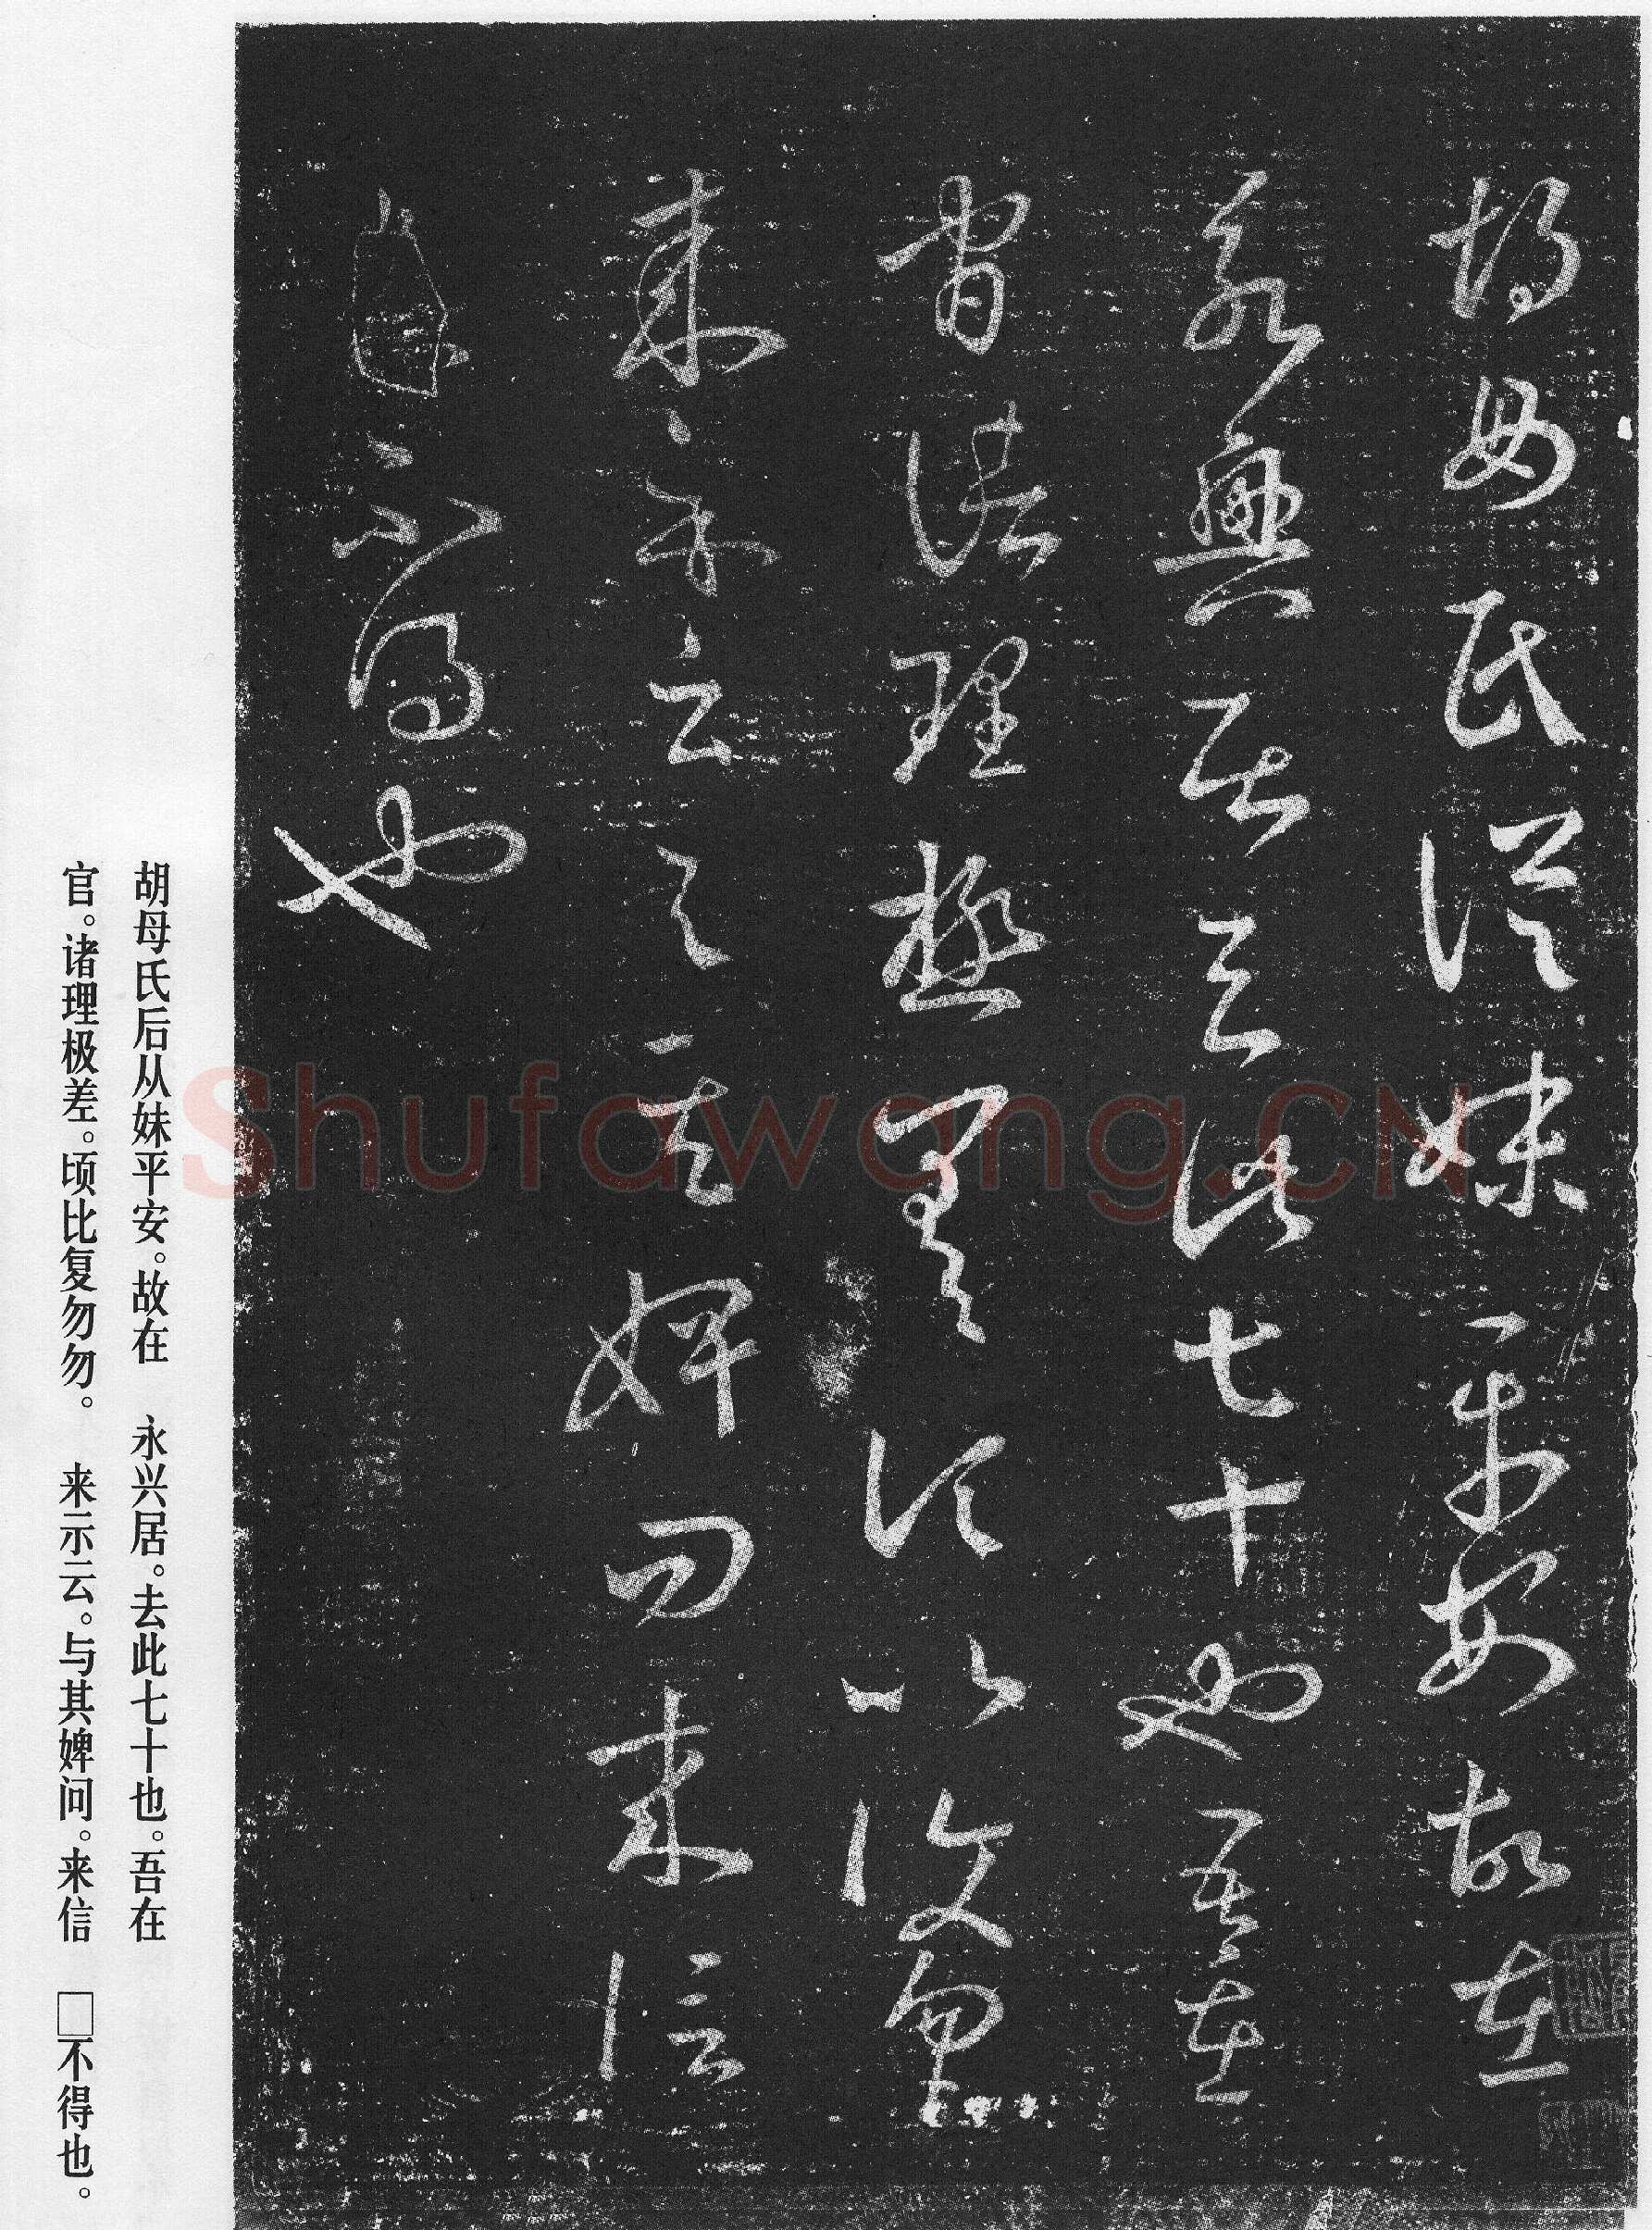 胡母氏从妹平安故在
永兴居去此七十也吾在
官诸理极差顷比复勿勿
来示云与其婢问来信
不得也
胡母氏后从妹平安。故在　永兴居。去此七十也。吾在
官。诸理极差。顷比复勿勿。　来示云。与其婢问。来信　□不得也。
Shufawang.CN